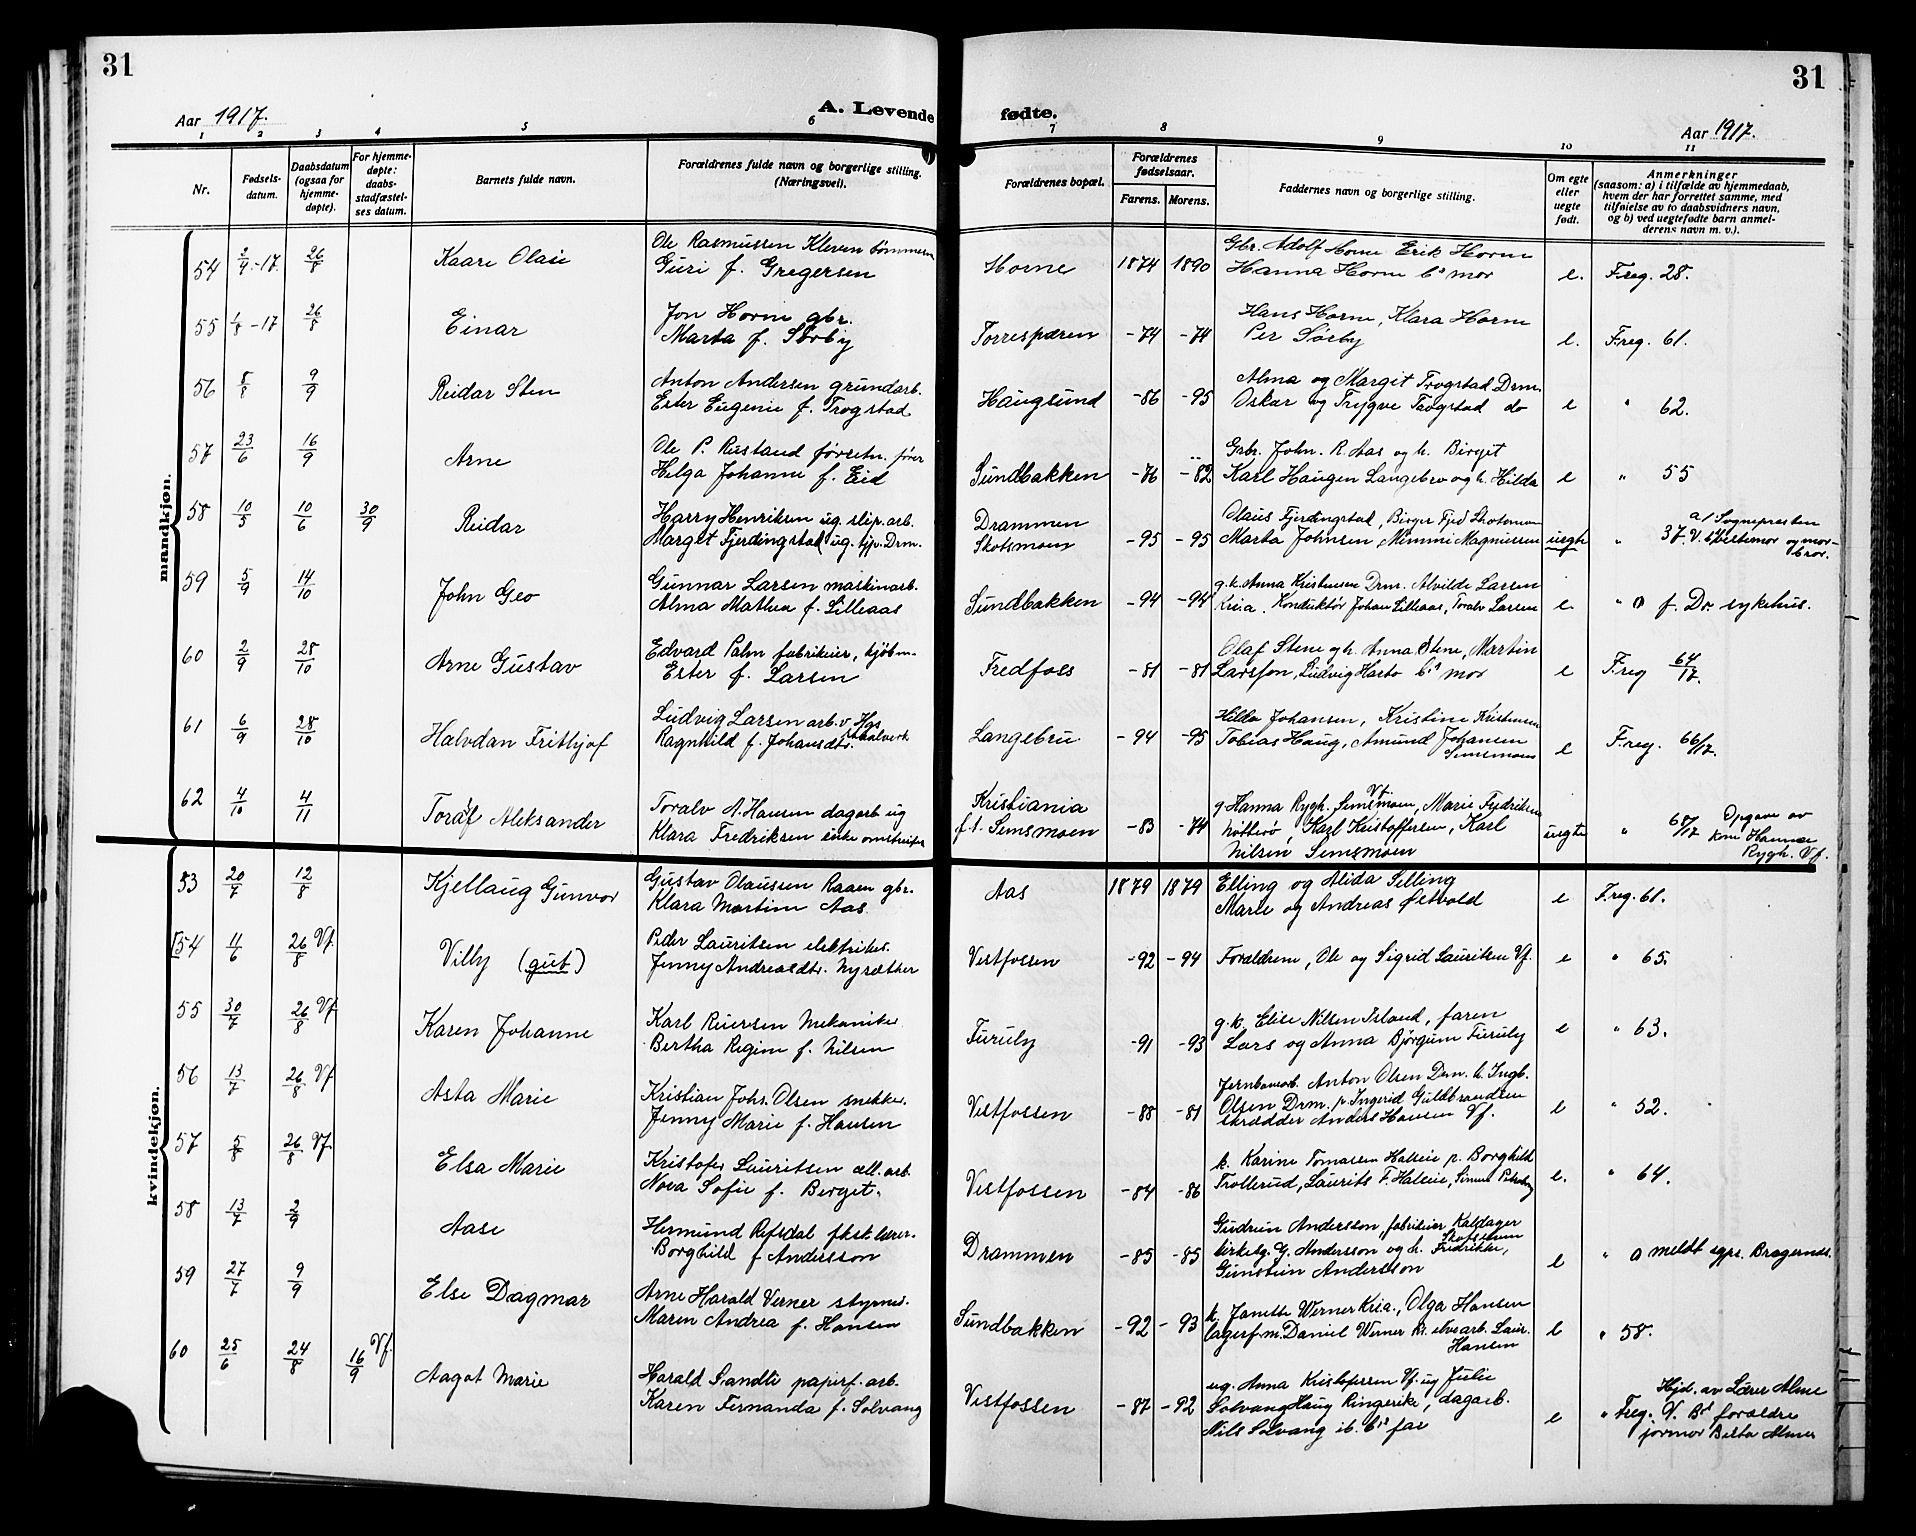 31
31
Aar 1917.
A. Levende fødte.
Aar 1917.
1 2 3 4 5 6 7 8 9 10 11
Nr.
Fødsels-
datum.
Daabsdatum
(ogsaa for
hjemme-
døpte).
For hjemme-
døpte:
daabs-
stadfæstel-
ses datum.
Barnets fulde navn.
Forældrenes fulde navn og borgerlige stilling.
(Næringsvei).
Forældrenes bopæl.
Forældrenes
fødselsaar.
Farens. Morens.
Faddernes navn og borgerlige stilling.
Om egte
eller
uegte
født.
Anmerkninger
(saasom: a) i tilfælde av hjemmedaab,
hvem der har forrettet samme, med
tilføielse av to daabsvidners navn,
og b) ved uegtefødte barn anmel-
derens navn m. v.).
mandkjøn.
54 2/9-17 26/8 Kaare Olav Ole Rasmussen Kleven tømmerm
Guri f. Gregersen Horne 1874 1890
Gbr. Adolf Horne Erik Horne
Hanna Horne b's mor e. Freg. 28.
55 1/8-17 26/8 Einar Jon Horne gbr.
Marta f. Sørby -74 -74
Hans Horne, Klara Horne
Per Sørby e. Freg. 61.
56 8/8 9/9 Reidar Sten Anton Andersen grundarb.
Ester Eugenie f. Trogstad Haugsund -86 -95
Alma og Margit Trogstad Drm.
Oskar og Trygve Trogstad do e " 62.
57 23/6 16/9 Arne Ole P. Rustand forretn. fører
Helga Johanne f. Eid Sundbakken -76 -82
Gbr. John. R. Aas og h. Birgit
Karl Haugen Langebro og h. Hilda e " 55
58 10/5 10/6 30/9 Reidar Harry Henriksen ug. slip. arb.
Margit Fjerdingstad ug. tjp. Drm. Drammen
Skotsmoen -95 -95
Olaus Fjerdingstad, Birger Fjed Skotsmoen
Marta Johnsen, Mimmi Magnussen uegte " 37. a/ Sognepresten
V. bestemor og mor-
bror.
59 5/9 14/10 John Geo Gunnar Larsen maskinarb.
Alma Mathea f. Lilleaas Sundbakken -94 -94
g.k. Anna Kristensen Drm. Alvilde Larsen
Kria. Konduktør Johan Lilleaas, Toralv Larsen e. " f. Dr. sykehus.
60 2/9 28/10 Arne Gustav Edvard Palm fabrikeier, kjøbm.
Ester f. Larsen Fredfoss -81 -81
Olaf Stene og h. Anna Stene, Martin
Larsson, Ludvig Harbo b's mor e Freg 64/17.
61 6/9 28/10 Halvdan Frithjof Ludvig Larsen arb. v. Hgs
Ragnhild f. Johansdtr. Langebru -94 -95
Hilda Johansen, Kristine Kristensen
Tobias Haug, Amund Johansen
Semsmoen e Freg. 66/17.
62 4/10 4/11 Toralf Aleksander Toralv A. Hansen dagarb ug
Klara Fredriksen enke Kristiania
f. t. Semsmoen -83 -74
g Hanna Rygh. Semsmoen, Vf. Marie Fredriksen
Nøtterø Karl Kristoffersen, Karl
Nilsen Semsmoen uegte " 68/17 Opgave av
kone Hanna
Rygh. Vf.
kvindekjøn.
53 20/7 12/8 Kjellaug Gunvor Gustav Olaussen Raaen gbr.
Klara Martine Aas Aas 1879 1879
Elling og Alida Selling
Marie og Andreas Østvold e Freg. 61.
[54 11/6 26/8 Vf. Villy (gut) Peder Lauritsen elektriker.
Jenny Andreasdtr. Nysæther Vestfossen -92 -94
Forældrene, Ole og Sigrid Lauritsen Vf. e " 65.
55 30/7 26/8 Vf Karen Johanne Karl Ruersen Mekaniker
Bertha Regine f. Nilsen Furuly -91 -93
g.k. Elise Nilsen Island, faren
Lars og Anna Bjørgum Furuly e " 63.
56 13/7 26/8 Vf Asta Marie Kristian Johs. Olsen snekker.
Jenny Marie f. Hansen Vestfossen -88 -81
Jernbanearb. Anton Olsen Drm. h. Ingb.
Olsen Drm. p Ingerid Guldbrandsen
skrædder Anders Hansen Vf. e " 52.
57 5/8 26/8 Vf. Elsa Marie Kristofer Lauritsen cell. arb.
Nora Sofie f. Berget. Vestfossen -84 -86
k. Karine Tomassen Halleie p. Borghild
Trollerud, Laurits T. Haleie, e. " 64.
58 13/7 2/9 Aase Hermund Refsdal lærer.
Borghild f Andersson Drammen -85 -85
Gudrun Andersson, fabrikeier Kaldager
kirkesg. G. Andersson og h. Fredrikke,
Gunstein Andersson e " o meldt sgpr. Bragernes.
59 27/7 9/9 Else Dagmar Arne Harald Verner styrm.
Maren Andrea f. Hansen Sundbakken -92 -93
k. Janette Werner Kria., Olga Hansen
lagerf. m. Daniel Werner Kr. elvearb. Laur.
Hansen e " 58.
60 25/6 24/8 16/9 Vf. Aagot Marie Harald Sandli papirf. arb.
Karen Fernanda f. Solvang Vestfossen -87 -92
ug. Anna Kristoffersen Vf. ug Julie
Solvang Haug Ringerike, dagarb.
Nils Solvang ib. b's far e " Freg. Hjd. av Lærer Alme
V. B's forældre
jormor Berta Alme